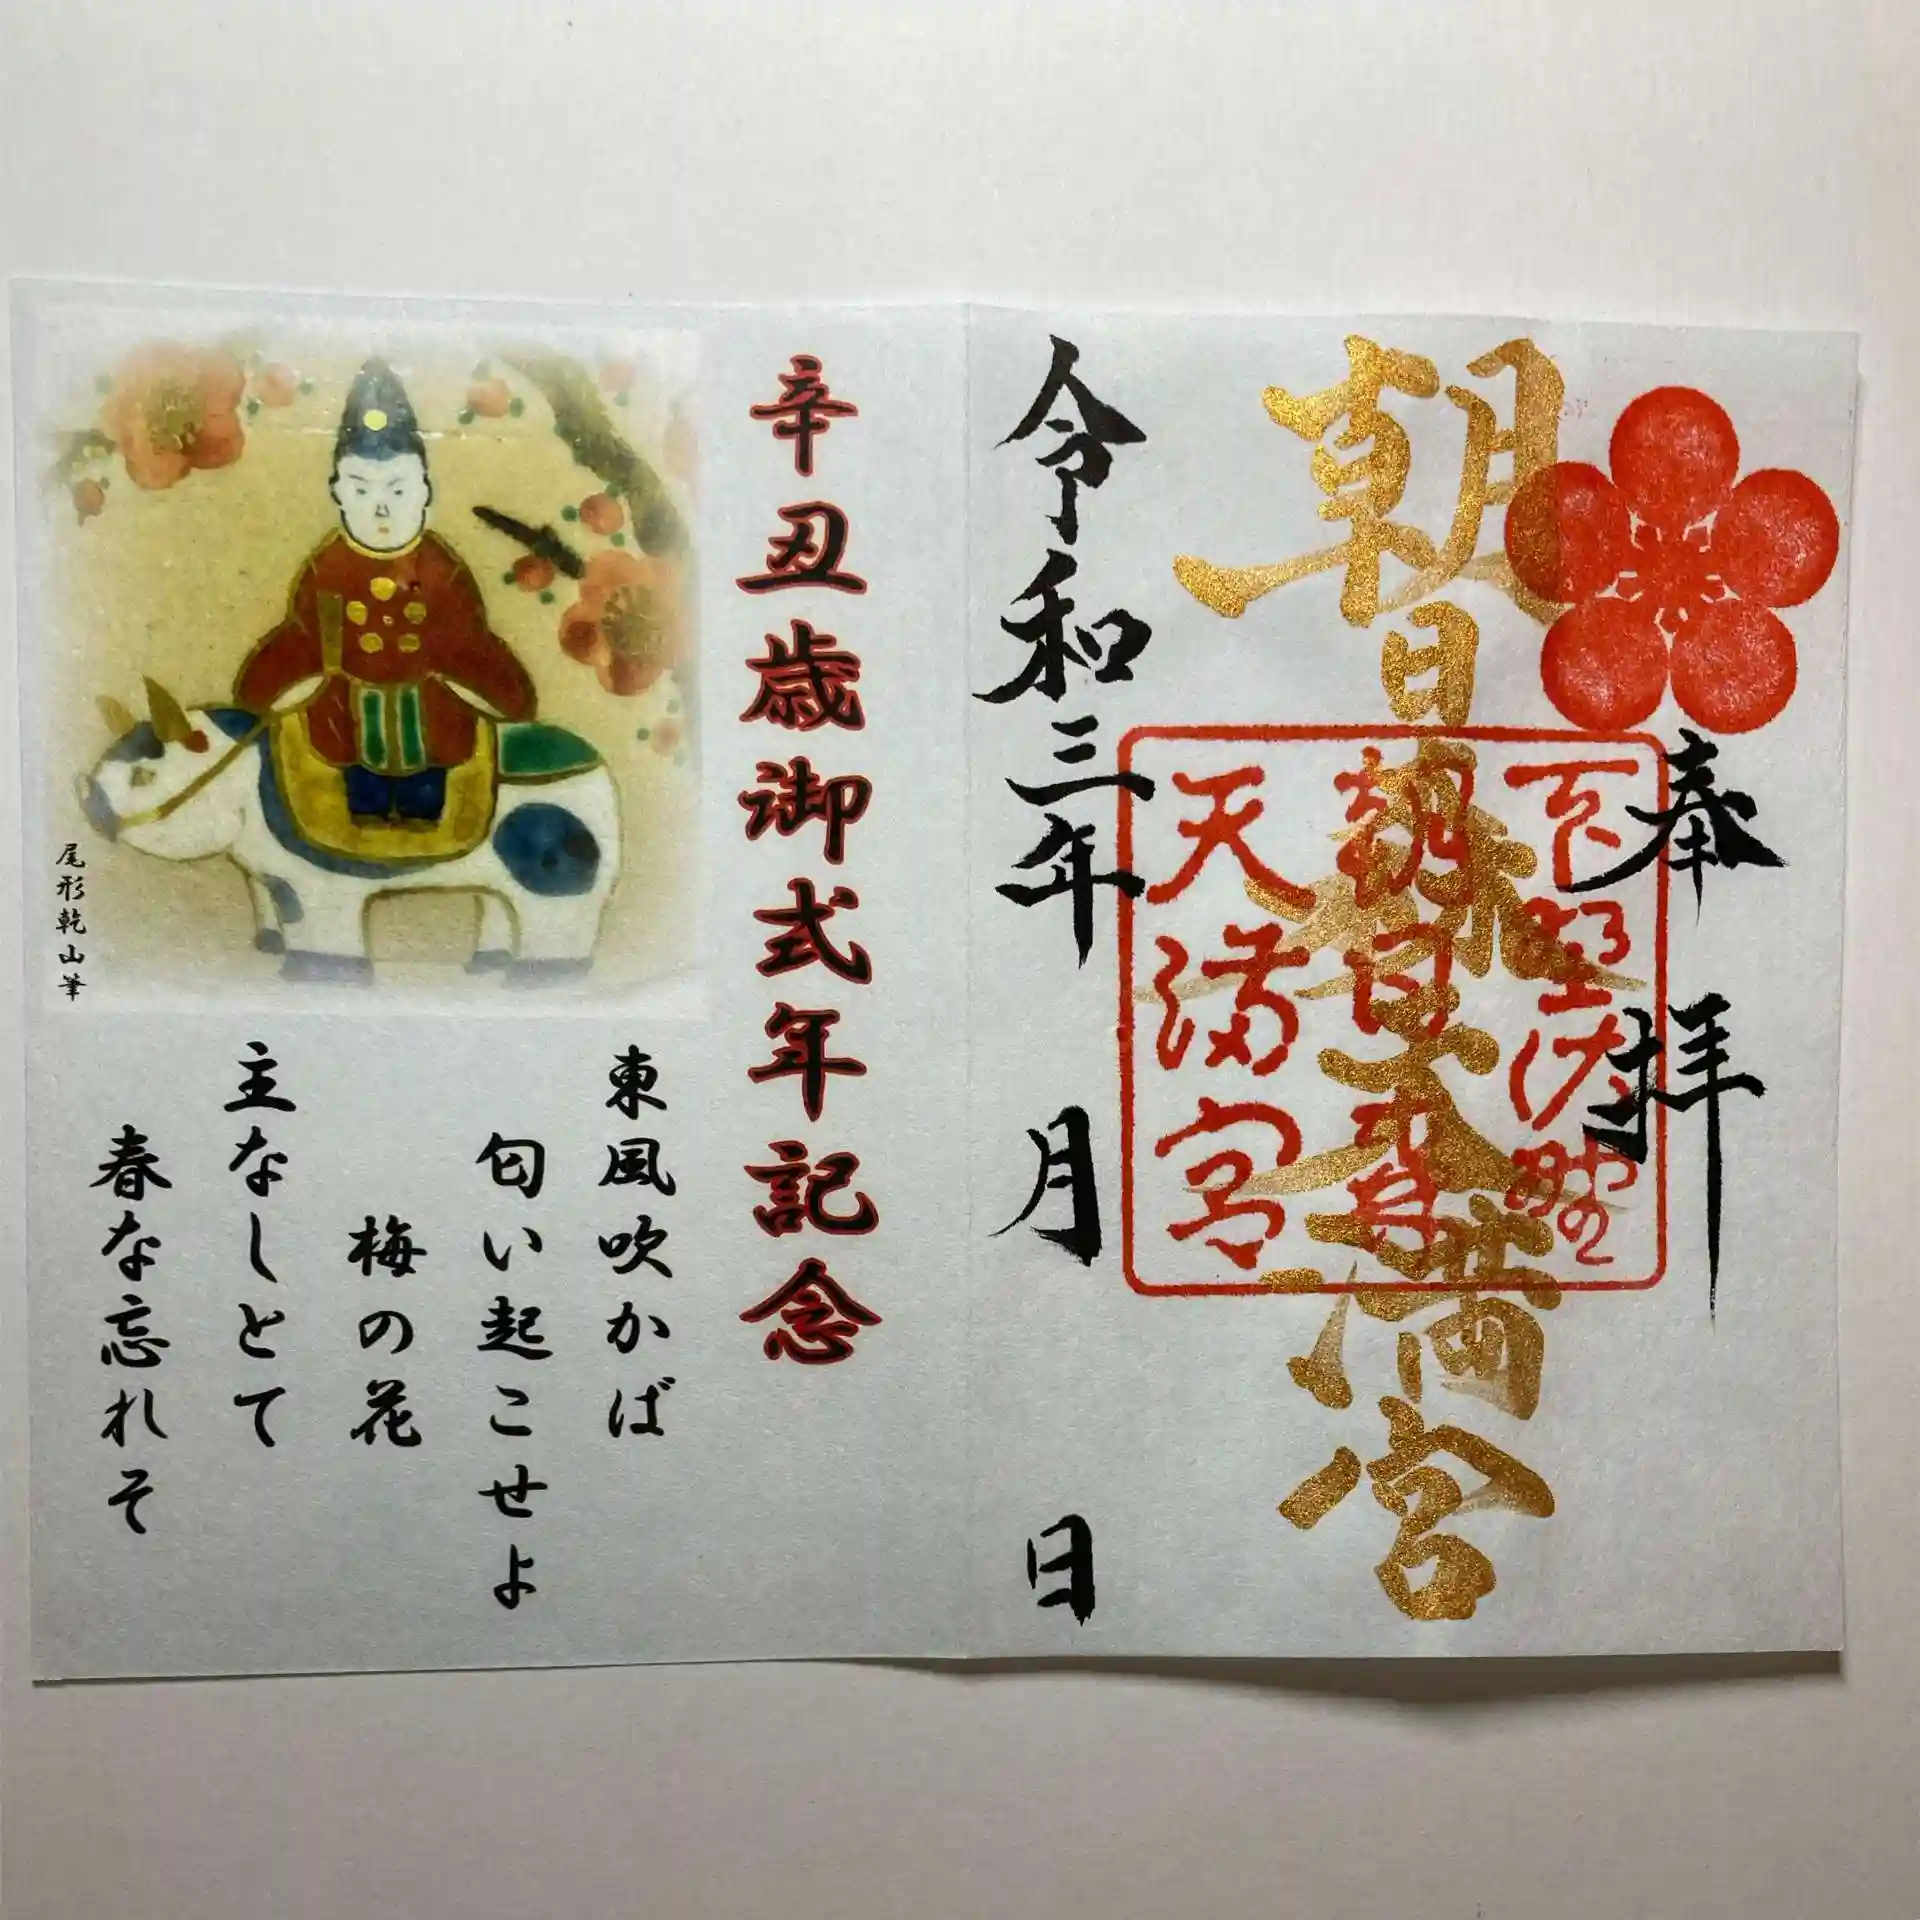 奉拝
朝日森天満宮
下野佐野
朝日森
天満宮
令和三年 月 日
辛丑歳御式年記念
東風吹かば
匂い起こせよ
梅の花
主なしとて
春な忘れそ
尾形乾山筆